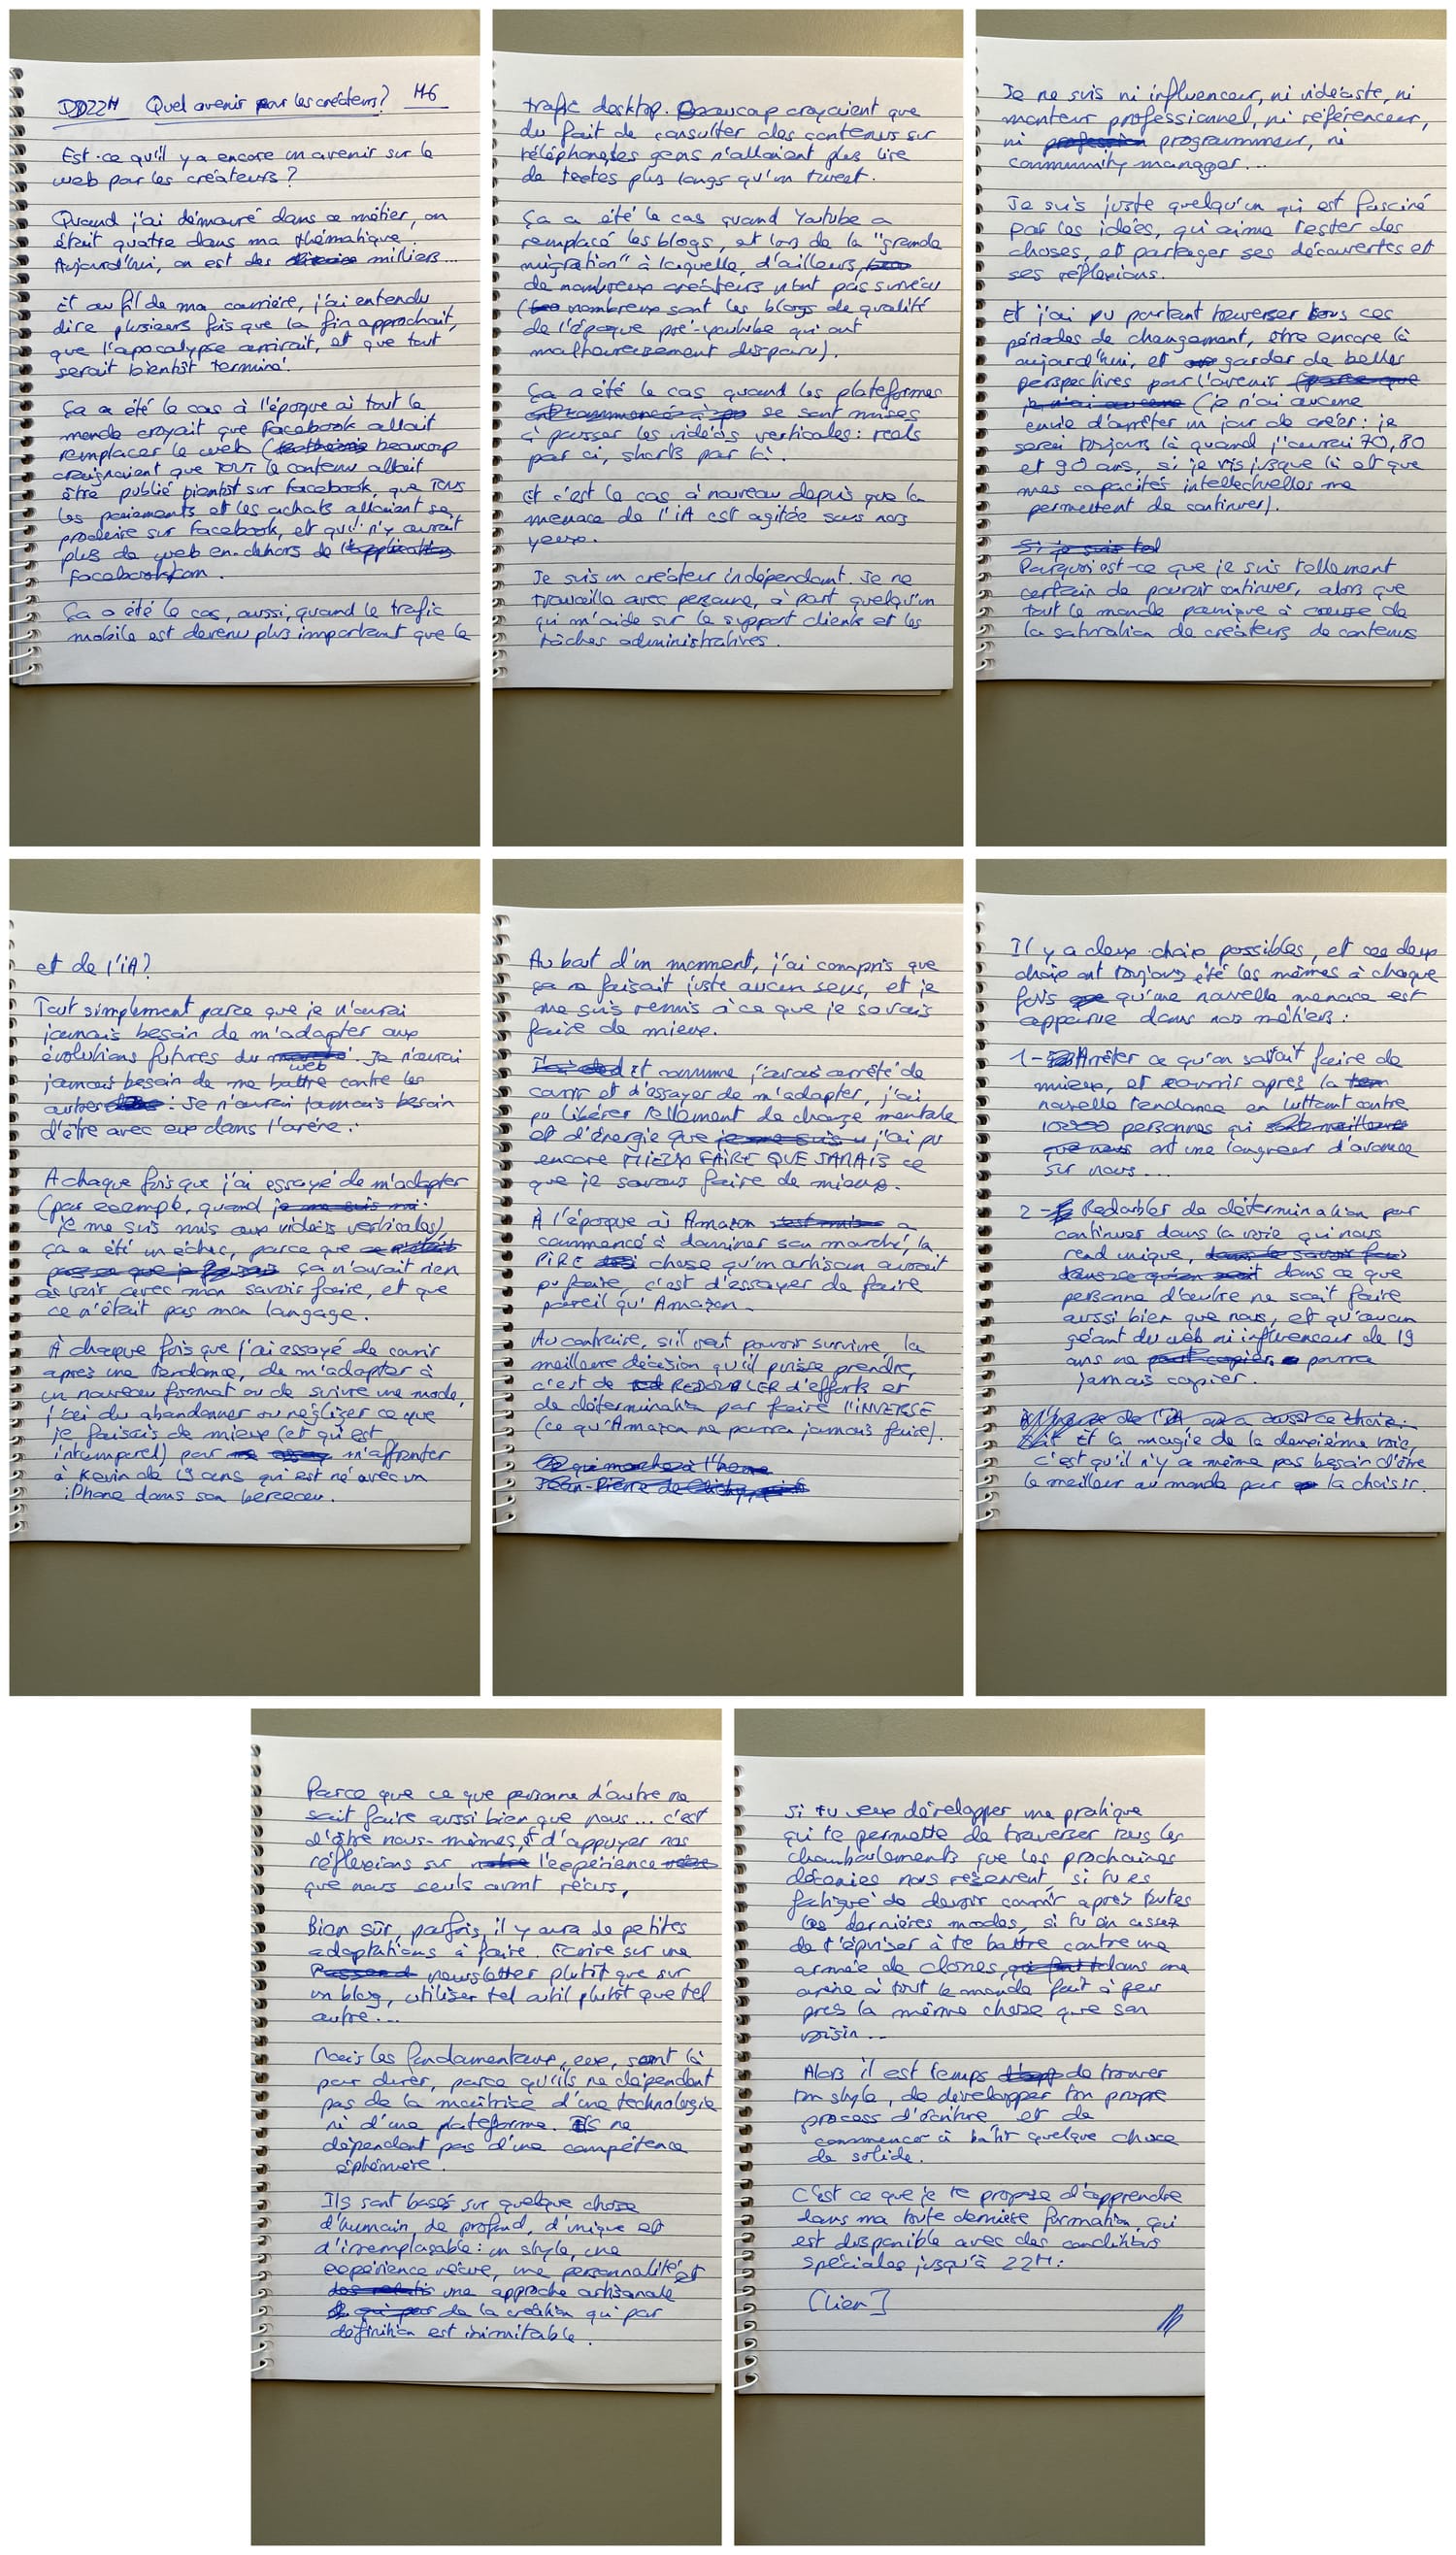 DD22H Quel avenir pour les créateurs? M-6
Est-ce qu'il y a encore un avenir sur le
web pour les créateurs?
Quand j'ai démarré dans ce métier, on
était quatre dans ma thématique.
Aujourd'hui, on est des milliers...
Et au fil de ma carrière, j'ai entendu
dire plusieurs fois que la fin approchait,
que l'apocalypse arrivait, et que tout
serait bientôt terminé.
Ça a été le cas à l'époque où tout le
monde croyait que Facebook allait
remplacer le web (beaucoup
craignaient que TOUT le contenu allait
être publié bientôt sur facebook, que TOUS
les paiements et les achats allaient se
produire sur Facebook, et qu'il n'y aurait
plus de web en-dehors de
facebook.com.
Ça a été le cas, aussi, quand le trafic
mobile est devenu plus important que le
trafic desktop. Beaucoup croyaient que
du fait de consulter des contenus sur
téléphone, les gens n'allaient plus lire
de textes plus longs qu'un tweet.
Ça a été le cas quand Youtube a
remplacé les blogs, et lors de la "grande
migration" à laquelle, d'ailleurs,
de nombreux créateurs n'ont pas survécu
(nombreux sont les blogs de qualité
de l'époque pré-youtube qui ont
malheureusement disparu).
Ça a été le cas quand les plateformes
se sont mises
à pousser les vidéos verticales: reels
par ci, shorts par là.
Et c'est le cas à nouveau depuis que la
menace de l'iA est agitée sous nos
yeux.
Je suis un créateur indépendant. Je ne
travaille avec personne, à part quelqu'un
qui m'aide sur le support clients et les
tâches administratives.
Je ne suis ni influenceur, ni vidéaste, ni
monteur professionnel, ni référenceur,
ni programmeur, ni
community manager...
Je suis juste quelqu'un qui est fasciné
par les idées, qui aime tester des
choses, et partager ses découvertes et
ses réflexions.
Et j'ai pu pourtant traverser tous ces
périodes de changement, être encore là
aujourd'hui, et garder de belles
perspectives pour l'avenir
(je n'ai aucune
envie d'arrêter un jour de créer: je
serai toujours là quand j'aurai 70, 80
et 90 ans, si je vis jusque là et que
mes capacités intellectuelles me
permettent de continuer).
Pourquoi est-ce que je suis tellement
certain de pouvoir continuer, alors que
tout le monde panique à cause de
la saturation de créateurs de contenus
et de l'iA?
Tout simplement parce que je n'aurai
jamais besoin de m'adapter aux
évolutions futures du web. Je n'aurai
jamais besoin de me battre contre les
autres: Je n'aurai jamais besoin
d'être avec eux dans l'arène.
A chaque fois que j'ai essayé de m'adapter
(par exemple, quand
je me suis mis aux vidéos verticales),
ça a été un échec, parce que
ça n'avait rien
à voir avec mon savoir faire, et que
ce n'était pas mon langage.
À chaque fois que j'ai essayé de courir
après une tendance, de m'adapter à
un nouveau format ou de suivre une mode,
j'ai du abandonner ou négliger ce que
je faisais de mieux (et qui est
intemporel) pour m'affronter
à Kevin de 19 ans qui est né avec un
iPhone dans son berceau.
Au bout d'un momment, j'ai compris que
ça n faisait juste aucun sens, et je
me suis remis à ce que je savais
faire de mieux.
Et comme j'avais arrêté de
courir et d'essayer de m'adapter, j'ai
pu libérer tellement de charge mentale
et d'énergie que j'ai pu
encore MIEUX FAIRE QUE JAMAIS ce
que je savais faire de mieux.
À l'époque où Amazon a
commencé à dominer son marché, la
PIRE chose qu'un artisan aurait
pu faire, c'est d'essayer de faire
pareil qu'Amazon.
Au contraire, s'il veut pouvoir survivre, la
meilleure décision qu'il puisse prendre,
c'est de REDOUBLER d'efforts et
de détermination pour faire l'INVERSE
(ce qu'Amazon ne pourra jamais faire).
Il y a deux choix possibles, et ces deux
choix ont toujours été les mêmes à chaque
fois qu'une nouvelle menace est
apparue dans nos métiers:
1- Arrêter ce qu'on savait faire de
mieux, et courrir après la
nouvelle tendance en luttant contre
10000 personnes qui
ont une longueur d'avance
sur nous...
2- Redoubler de détermination pour
continuer dans la voie qui nous
rend unique,
dans ce que
personne d'autre ne sait faire
aussi bien que nous, et qu'aucun
géant du web ni influenceur de 19
ans ne pourra
jamais copier.
Et la magie de la deuxième voie,
c'est qu'il n'y a même pas besoin d'être
le meilleur au monde pour la choisir.
Parce que ce que personne d'autre ne
sait faire aussi bien que nous... c'est
d'être nous-mêmes, et d'appuyer nos
réflexions sur l'expérience
que nous seuls avont vécus.
Bien sûr, parfois, il y aura de petites
adaptations à faire. Ecrire sur une
newsletter plutôt que sur
un blog, utiliser tel outil plutôt que tel
autre...
Mais les fondamentaux, eux, sont là
pour durer, parce qu'ils ne dépendent
pas de la maîtrise d'une technologie
ni d'une plateforme. Ils ne
dépendent pas d'une compétence
éphémère.
Ils sont basés sur quelque chose
d'humain, de profond, d'unique et
d'irremplaçable: un style, une
expérience vécue, une personnalité, et
une approche artisanale
de la création qui par
définition est inimitable.
Si tu veux développer une pratique
qui te permette de traverser tous les
chamboulements que les prochaines
décenies nous réservent, si tu es
fatigué de devoir courrir après toutes
les dernières modes, si tu en assez
de t'épuiser à te battre contre une
armée de clones, dans une
arène où tout le monde fait à peu
près la même chose que son
voisin...
Alors il est temps de trouver
ton style, de développer ton propre
process d'écriture, et de
commencer à bâtir quelque chose
de solide.
C'est ce que je te propose d'apprendre
dans ma toute dernière formation, qui
est disponible avec des conditions
spéciales jusqu'à 22H:
[Lien]